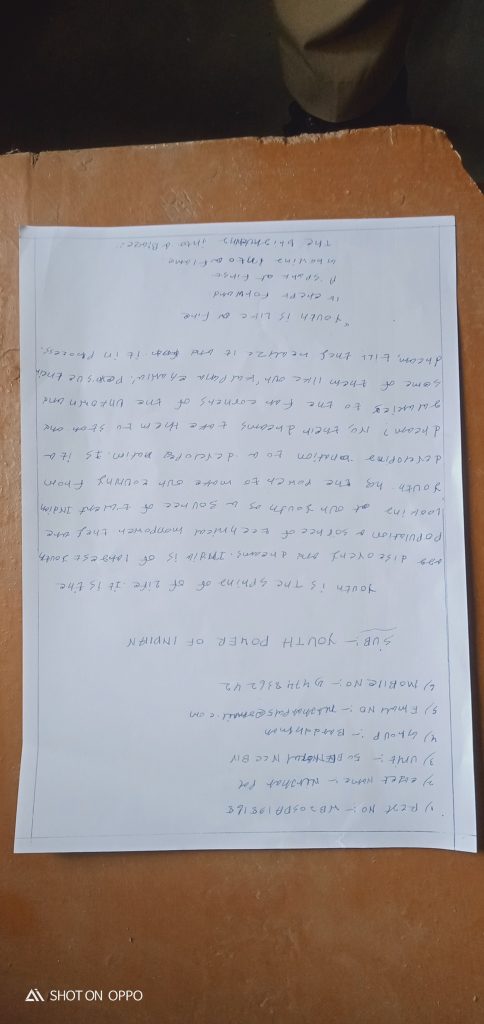 1) REGT NO:- WB20SDA198168
2) CADET NAME:- Pal
3) UNIT:- 50 BENGAL NCC BN
4) GROUP:- Bardhaman
5) EMAIL NO:-
6) MOBILE NO:-
SUB:- YOUTH POWER OF INDIAN
Youth is the spring of life. It is the
discovery and dreams. India is of largest youth
population of a source of technical manpower they are
Looking at our youth as a source of talent Indian
youth has the power to make our country from
developing nation to a developed nation. Is it a
dream? No, their dreams take them to star and
galaxies to the far corners of the unknown and
some of them like our, Kalpana chawla'. Persue their
dream, till they realize it and in process.
"Youth is like a fire
forward
A spark at first
into a flame
The into a Blaze".
SHOT ON OPPO